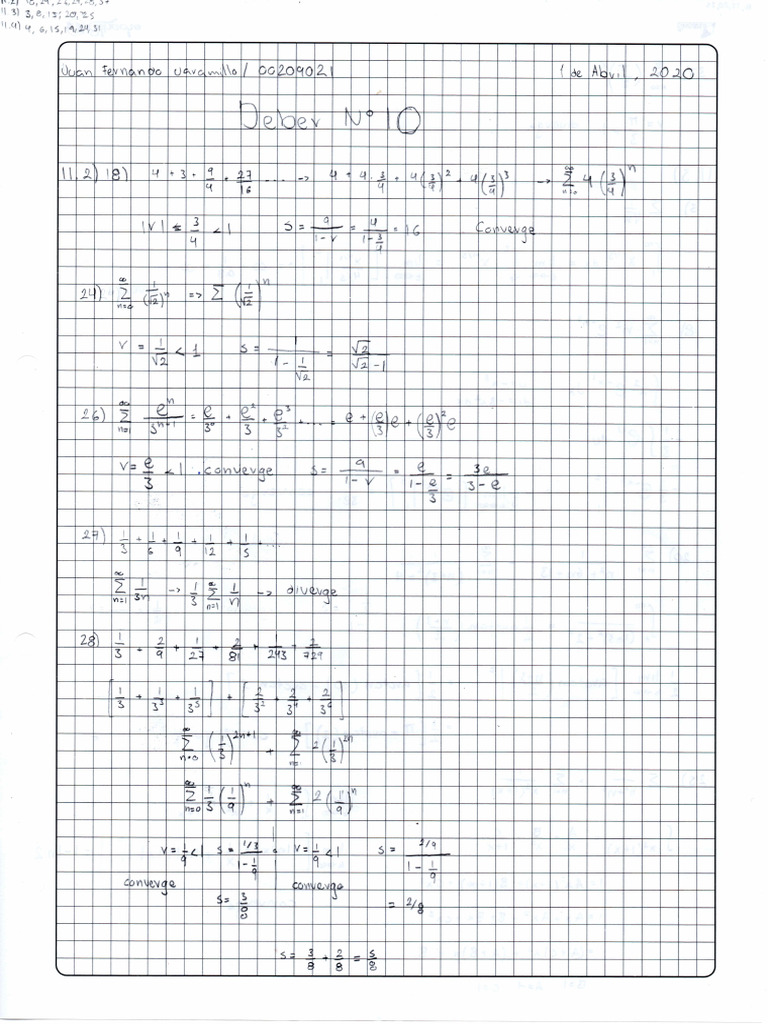 11.3) 3, 8, 13, 20, 25
11.4) 4, 6, 15, 19, 29, 31
Juan Fernando Jaramillo / 00209021 1 de Abril, 2020
Deber N° 10
11.2) 18) 4 + 3 + 9/4 + 27/16 .... → 4 + 4·3/4 + 4(3/4)² + 4(3/4)³ → ∑_{n=0}^∞ 4(3/4)^n
|r| = 3/4 < 1 S = a/(1-r) = 4/(1-3/4) = 16 Converge
24) ∑_{n=0}^∞ 1/(√2)^n => ∑ (1/√2)^n
r = 1/√2 < 1 S = 1/(1 - 1/√2) = √2/(√2-1)
26) ∑_{n=1}^∞ e^n/3^{n-1} = e/3° + e²/3 + e³/3² + ... = e + (e/3)e + (e/3)²e
r = e/3 < 1 . converge S = a/(1-r) = e/(1-e/3) = 3e/(3-e)
27) 1/3 + 1/6 + 1/9 + 1/12 + 1/5 ...
∑_{n=1}^∞ 1/3n → 1/3 ∑_{n=1}^∞ 1/n → diverge
28) 1/3 + 2/9 + 1/27 + 2/81 + 1/243 + 2/729
[1/3 + 1/3³ + 1/3⁵] + [2/3² + 2/3⁴ + 2/3⁶]
∑_{n=0}^∞ (1/3)^{2n+1} + ∑_{n=1}^∞ 2(1/3)^{2n}
∑_{n=0}^∞ 1/3 (1/9)^n + ∑_{n=1}^∞ 2(1/9)^n
r = 1/9 < 1 S = (1/3)/(1-1/9) r = 1/9 < 1 S = (2/9)/(1-1/9)
converge converge
S = 3/8 = 2/8
S = 3/8 + 2/8 = 5/8